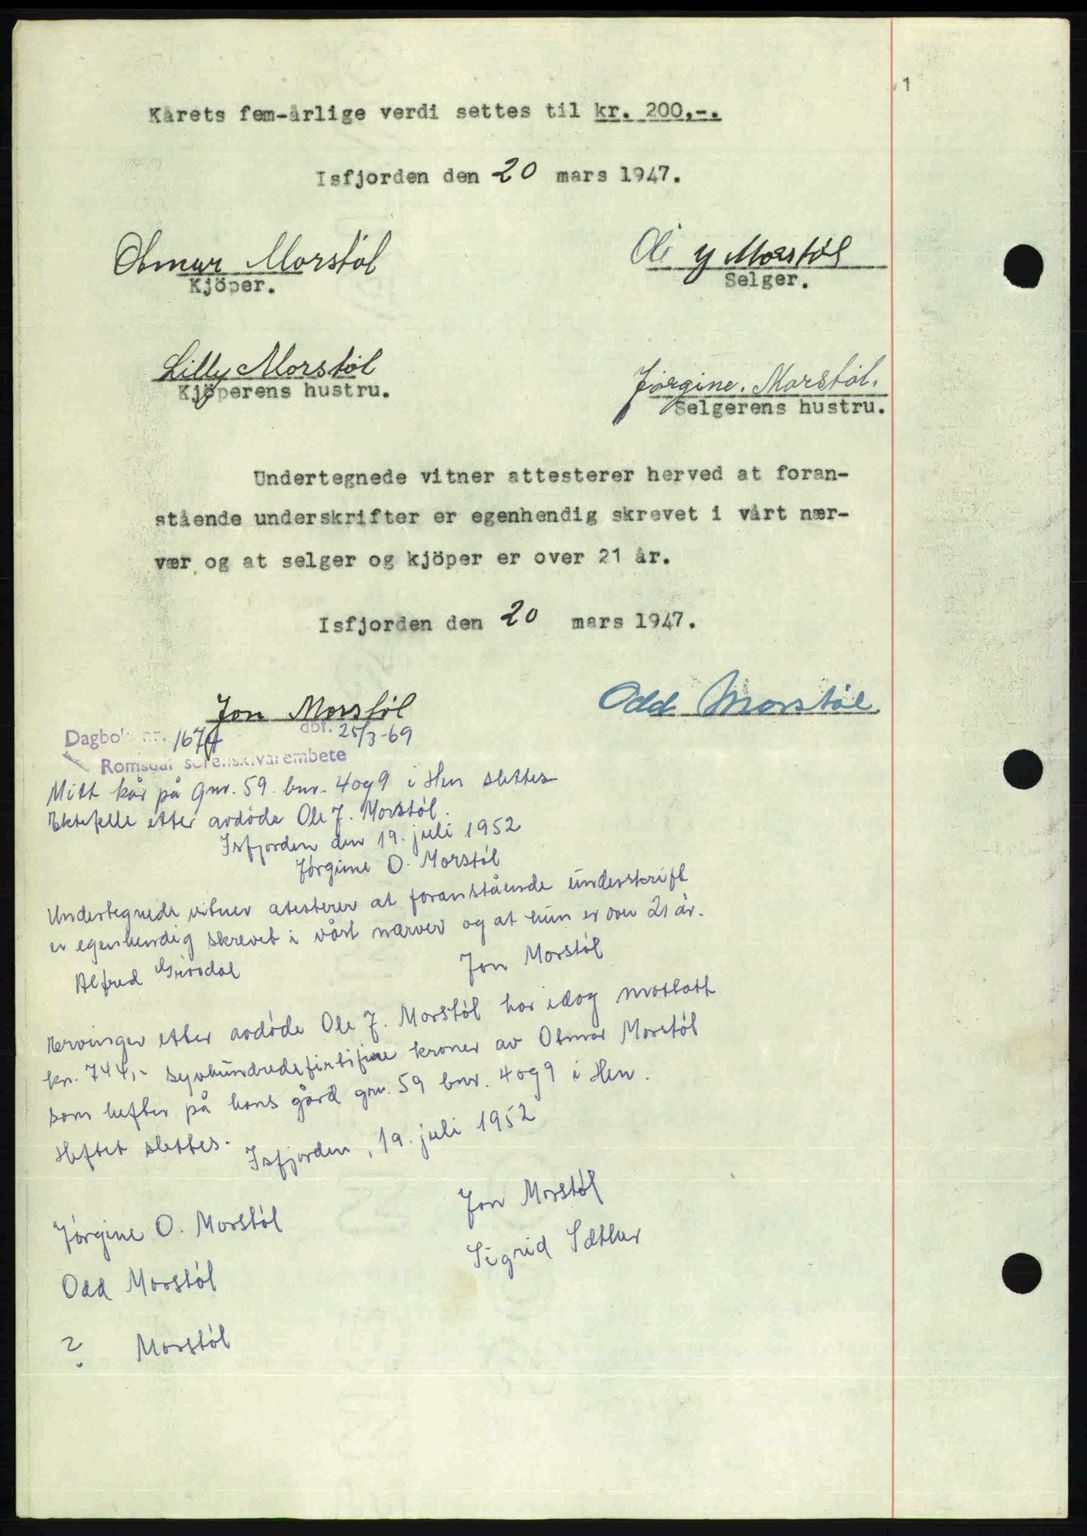 1
Kårets fem-årlige verdi settes til kr. 200,-.
Isfjorden den 20 mars 1947.
Otmar Morstøl
Kjöper.
Ole J Morstøl
Selger.
Lilly Morstøl
Kjöperens hustru.
Jørgine. Morstøl.
Selgerens hustru.
Undertegnede vitner attesterer herved at foran-
stående underskrifter er egenhendig skrevet i vårt nær-
vær og at selger og kjöper er over 21 år.
Isfjorden den 20 mars 1947.
Jon Morstøl
Odd Morstøl
Dagbok nr. 1674 dbf. 25/3-69
Romsdal sorenskriverembete
Mitt kår på gnr. 59. bnr. 4 og 9 i Hen slettes
Ektefelle etter avdøde Ole J. Morstøl.
Isfjorden den 19. juli 1952
Jørgine O. Morstøl
Undertegnede vitner atesterer at foranstående underskrift
er egenhendig skrevet i vårt nærver og at hun er over 21 år.
Alfred Grøvdal
Jon Morstøl
Arvinger etter avdøde Ole J. Morstøl har idag mottatt
kr. 744,- syvhundredeførtifire kroner av Otmar Morstøl
som hefter på hans gård gnr. 59 bnr. 4 og 9 i Hen.
Heftet slettes.
Isfjorden, 19. juli 1952
Jørgine O. Morstøl
Jon Morstøl
Odd Morstøl
Sigrid Sæther
? Morstøl